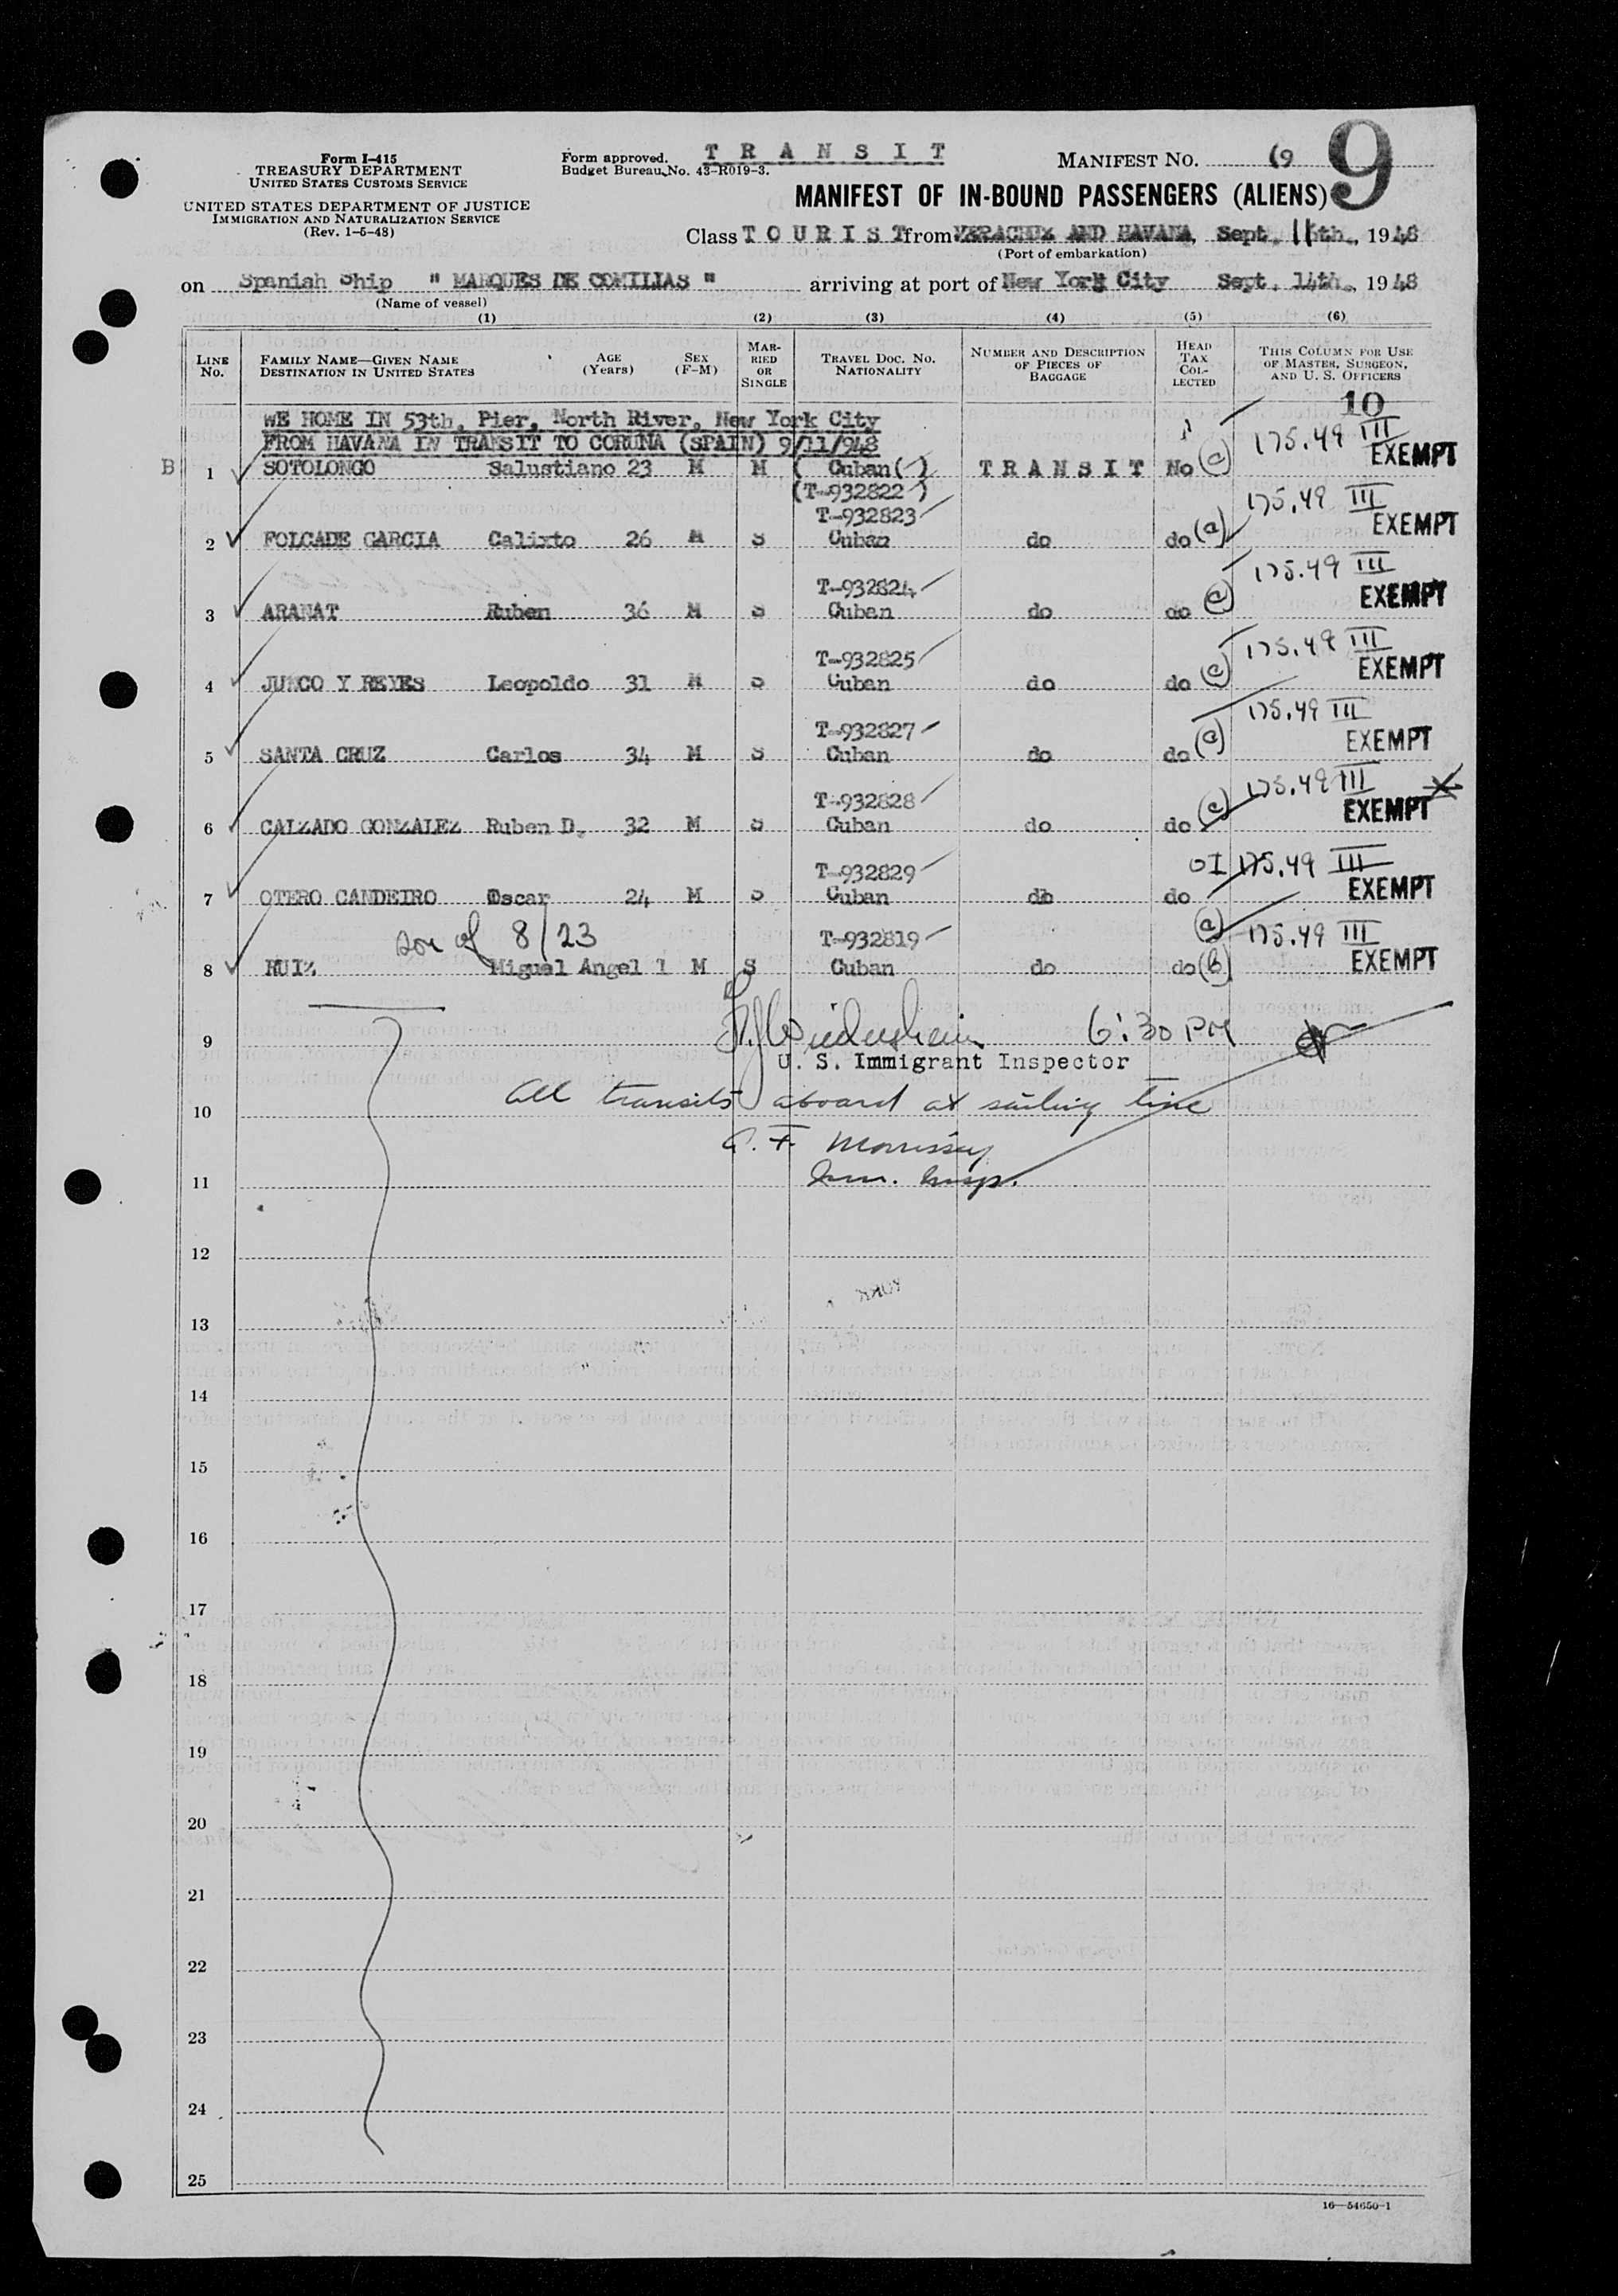 T R A N S I T
Form I-415
TREASURY DEPARTMENT
UNITED STATES CUSTOMS SERVICE
UNITED STATES DEPARTMENT OF JUSTICE
IMMIGRATION AND NATURALIZATION SERVICE
(Rev. 1-5-48)
Form approved.
Budget Bureau No. 43-R019-3.
MANIFEST NO. 9
9
MANIFEST OF IN-BOUND PASSENGERS (ALIENS)
Class T O U R I S T from VERACRUZ AND HAVANA, Sept. 11th., 1948
(Port of embarkation)
on Spanish Ship " MARQUES DE COMILIAS " arriving at port of New York City Sept. 14th., 1948
(Name of vessel)
(1) (2) (3) (4) (5) (6)
LINE No. FAMILY NAME—GIVEN NAME DESTINATION IN UNITED STATES AGE (Years) SEX (F-M) MARRIED OR SINGLE TRAVEL DOC. NO. NATIONALITY NUMBER AND DESCRIPTION OF PIECES OF BAGGAGE HEAD TAX COLLECTED THIS COLUMN FOR USE OF MASTER, SURGEON, AND U. S. OFFICERS
10
WE HOME IN 53th, Pier, North River, New York City
FROM HAVANA IN TRANSIT TO CORUNA (SPAIN) 9/11/948
175.49 III
B 1 SOTOLONGO Salustiano 23 M M ( Cuban( ) T R A N S I T No (a) EXEMPT
(T-932822 )
T-932823 175.49 III
2 FOLCADE GARCIA Calixto 26 M S Cuban do do (a) EXEMPT
T-932824 175.49 III
3 ARANAT Ruben 36 M S Cuban do do (a) EXEMPT
T-932825 175.49 III
4 JUNCO Y REYES Leopoldo 31 M S Cuban do do (a) EXEMPT
T-932827 175.49 III
5 SANTA CRUZ Carlos 34 M S Cuban do do (a) EXEMPT
T-932828 175.49 III
6 CALZADO GONZALEZ Ruben D. 32 M S Cuban do do (a) EXEMPT X
T-932829 OI 175.49 III
7 OTERO CANDEIRO Oscar 24 M S Cuban do do EXEMPT
son of 8/23 T-932819 (a) 175.49 III
8 RUIZ Miguel Angel 1 M S Cuban do do (B) EXEMPT
9 6:30 PM
U. S. Immigrant Inspector
10 All transits aboard at sailing time
Morrissey
11 Imm. Insp.
12
13
14
15
16
17
18
19
20
21
22
23
24
25
16—54650-1